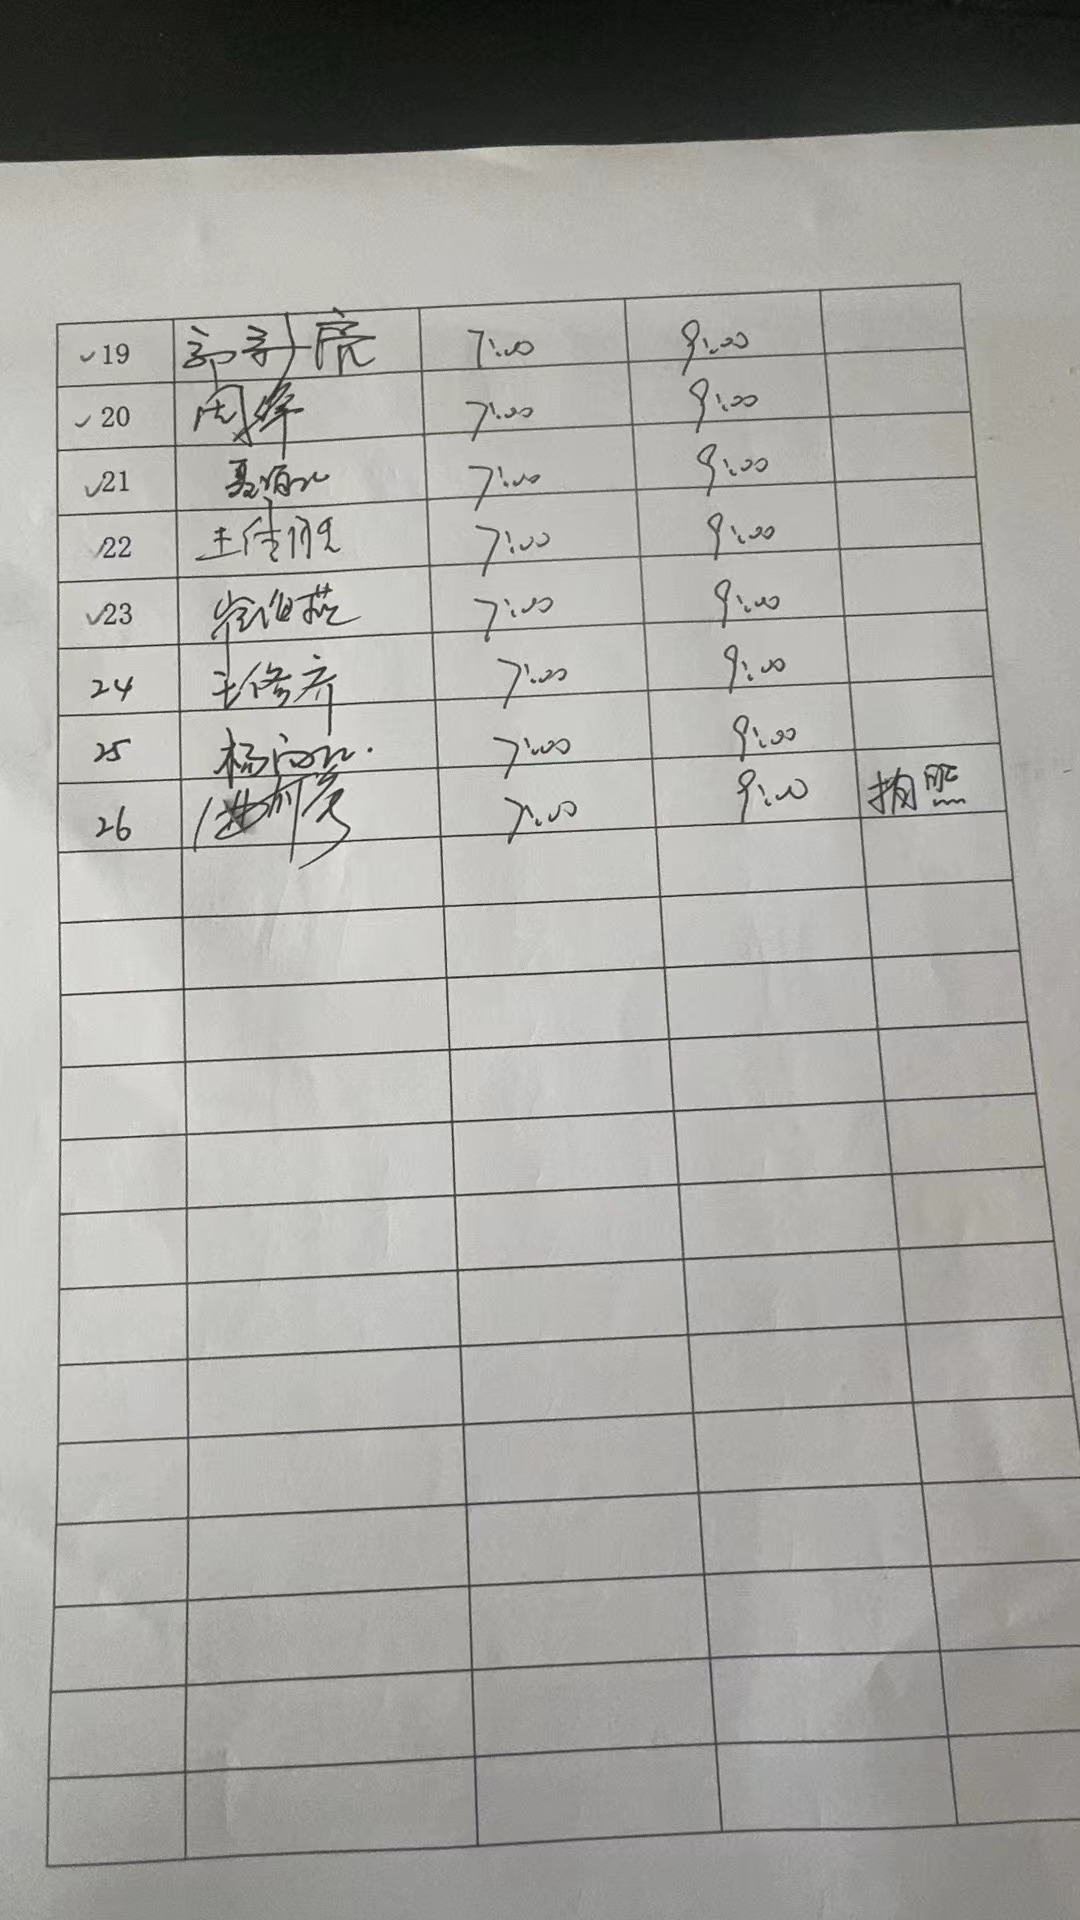 ✓19 郭子亮 7:00 9:00
✓20 周峰 7:00 9:00
✓21 7:00 9:00
✓22 王佳 7:00 9:00
✓23 7:00 9:00
24 王修齐 7:00 9:00
25 杨 7:00 9:00
26 7:00 9:00 拍照